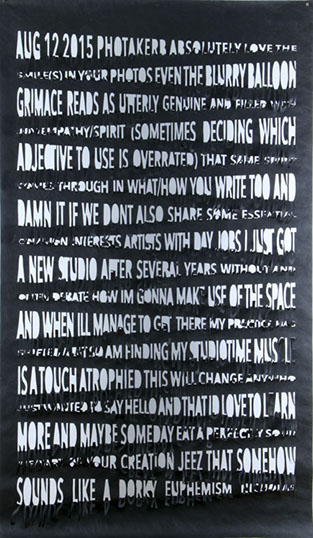 AUG 12 2015 PHOTAKERB ABSOLUTELY LOVE THE
SMILE(S) IN YOUR PHOTOS EVEN THE BLURRY BALLOON
GRIMACE READS AS UTTERLY GENUINE AND FILLED WITH
EMPATHY/SPIRIT (SOMETIMES DECIDING WHICH
ADJECTIVE TO USE IS OVERRATED) THAT SAME SPIRIT
COMES THROUGH IN WHAT/HOW YOU WRITE TOO AND
DAMN IT IF WE DONT ALSO SHARE SOME ESSENTIAL
COMMON INTERESTS ARTISTS WITH DAY JOBS I JUST GOT
A NEW STUDIO AFTER SEVERAL YEARS WITHOUT AND
OFTEN DEBATE HOW IM GONNA MAKE USE OF THE SPACE
AND WHEN ILL MANAGE TO GET THERE MY PRACTICE HAS
AM FINDING MY STUDIOTIME MUSCLE
IS A TOUCH ATROPHIED THIS WILL CHANGE ANYWHO
JUST WANTED TO SAY HELLO AND THAT ID LOVE TO LEARN
MORE AND MAYBE SOMEDAY EAT A PERFECTLY SOUR
OF YOUR CREATION JEEZ THAT SOMEHOW
SOUNDS LIKE A DORKY EUPHEMISM